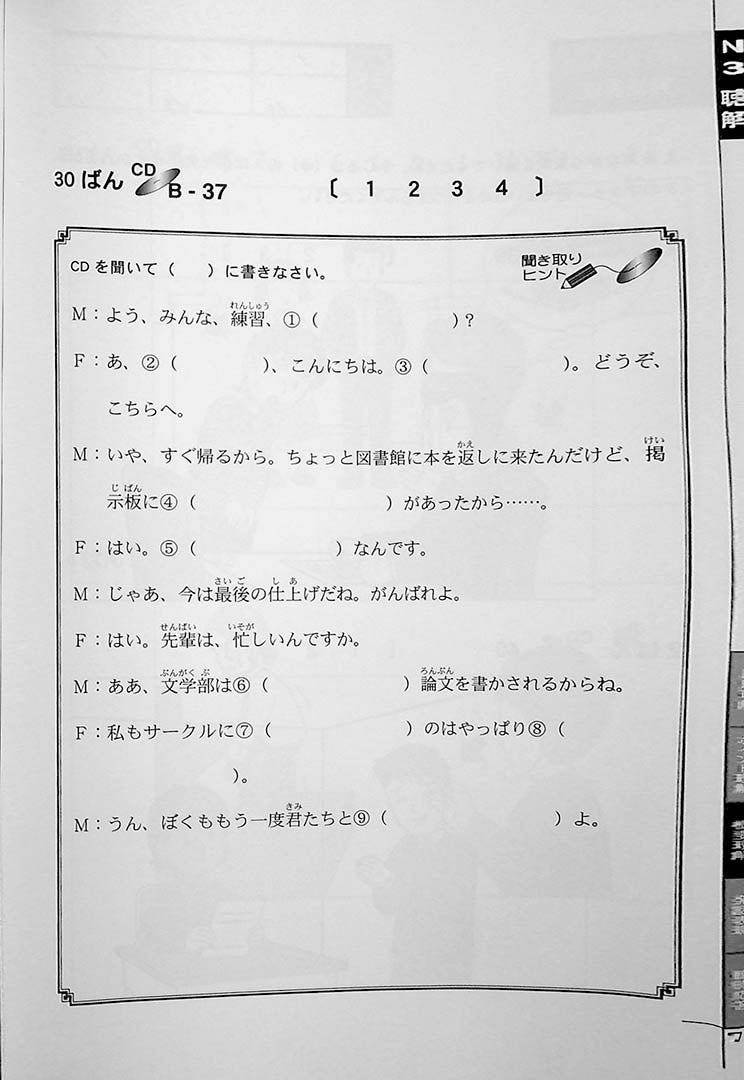 N3 聴解
30 ばん CD B - 37 〔 1 2 3 4 〕
CD を聞いて（ ）に書きなさい。
聞き取りヒント
M：よう、みんな、練習、①（ ）?
F：あ、②（ ）、こんにちは。③（ ）。どうぞ、
こちらへ。
M：いや、すぐ帰るから。ちょっと図書館に本を返しに来たんだけど、掲
示板に④（ ）があったから……。
F：はい。⑤（ ）なんです。
M：じゃあ、今は最後の仕上げだね。がんばれよ。
F：はい。先輩は、忙しいんですか。
M：ああ、文学部は⑥（ ）論文を書かされるからね。
F：私もサークルに⑦（ ）のはやっぱり⑧（
）。
M：うん、ぼくももう一度君たちと⑨（ ）よ。